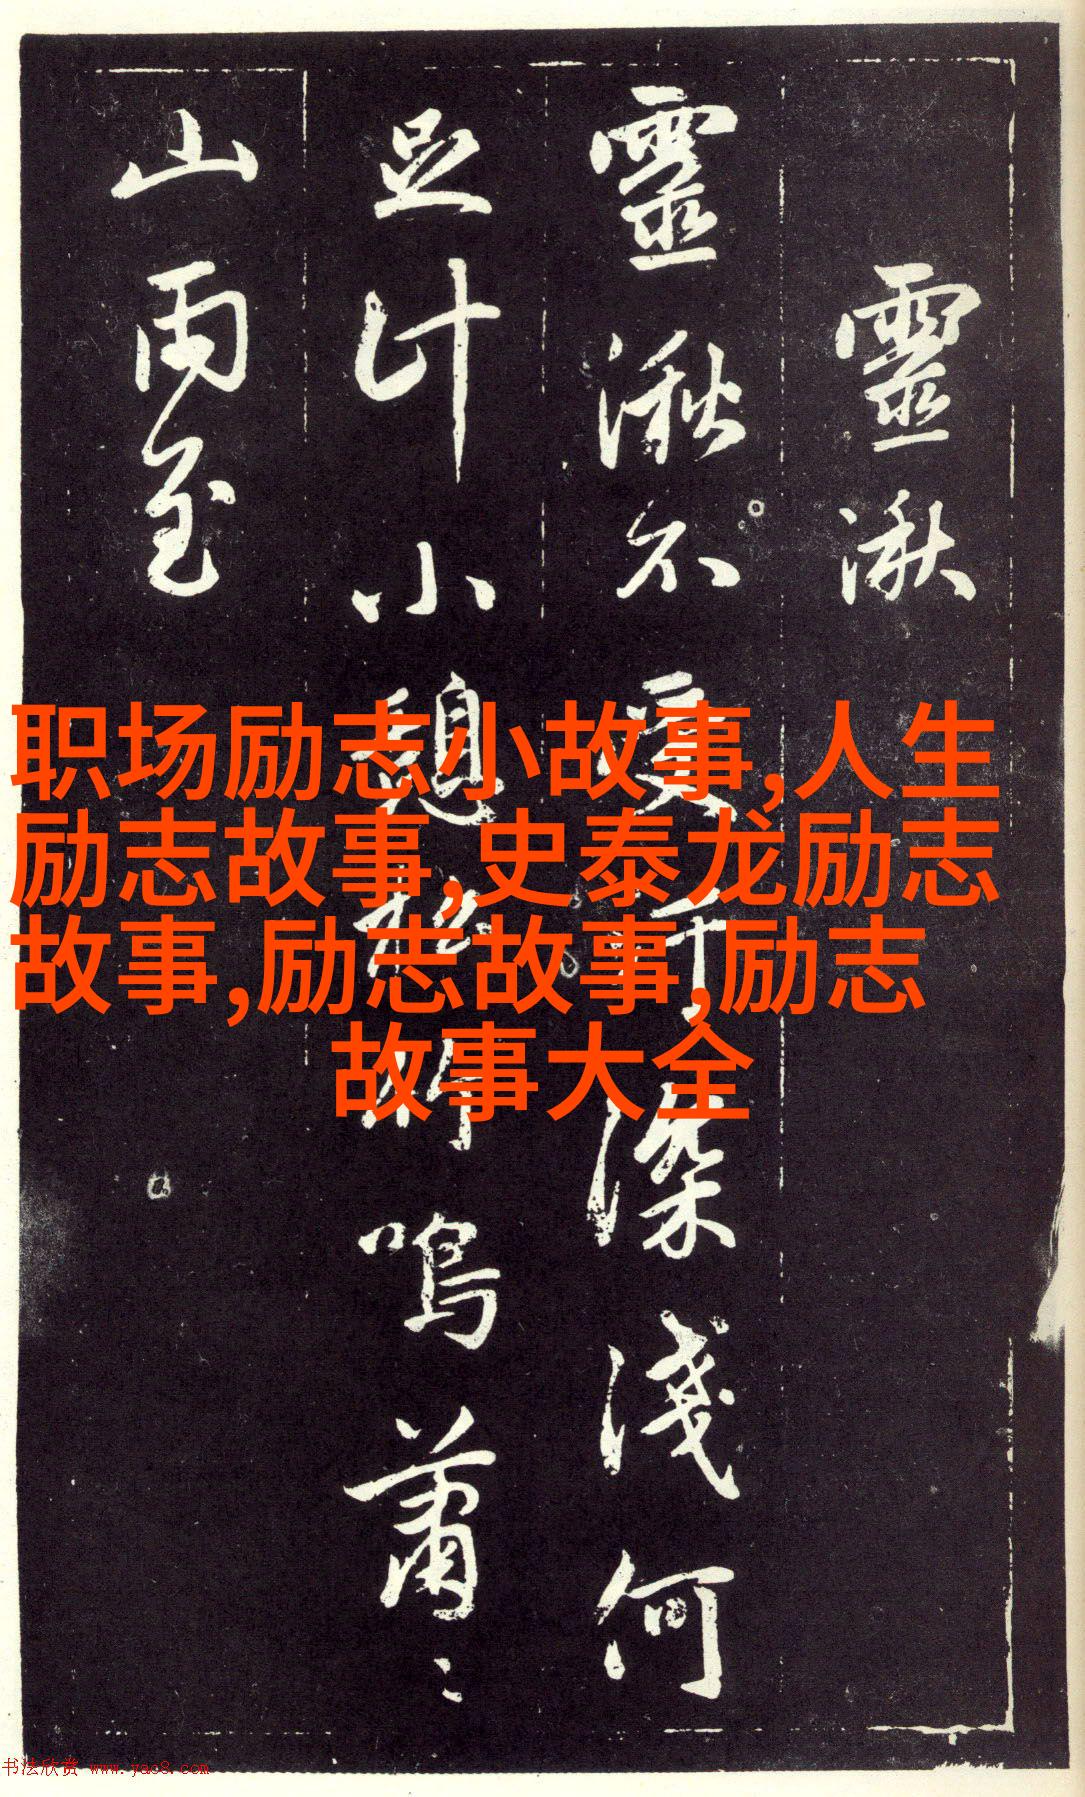 靈湫
靈湫不受汙深淺何
足計小憩松竹鳴蕭〻
山雨至
职场励志小故事,人生
励志故事,史泰龙励志
故事,励志故事,励志
故事大全
书法欣赏 www.yac8.com